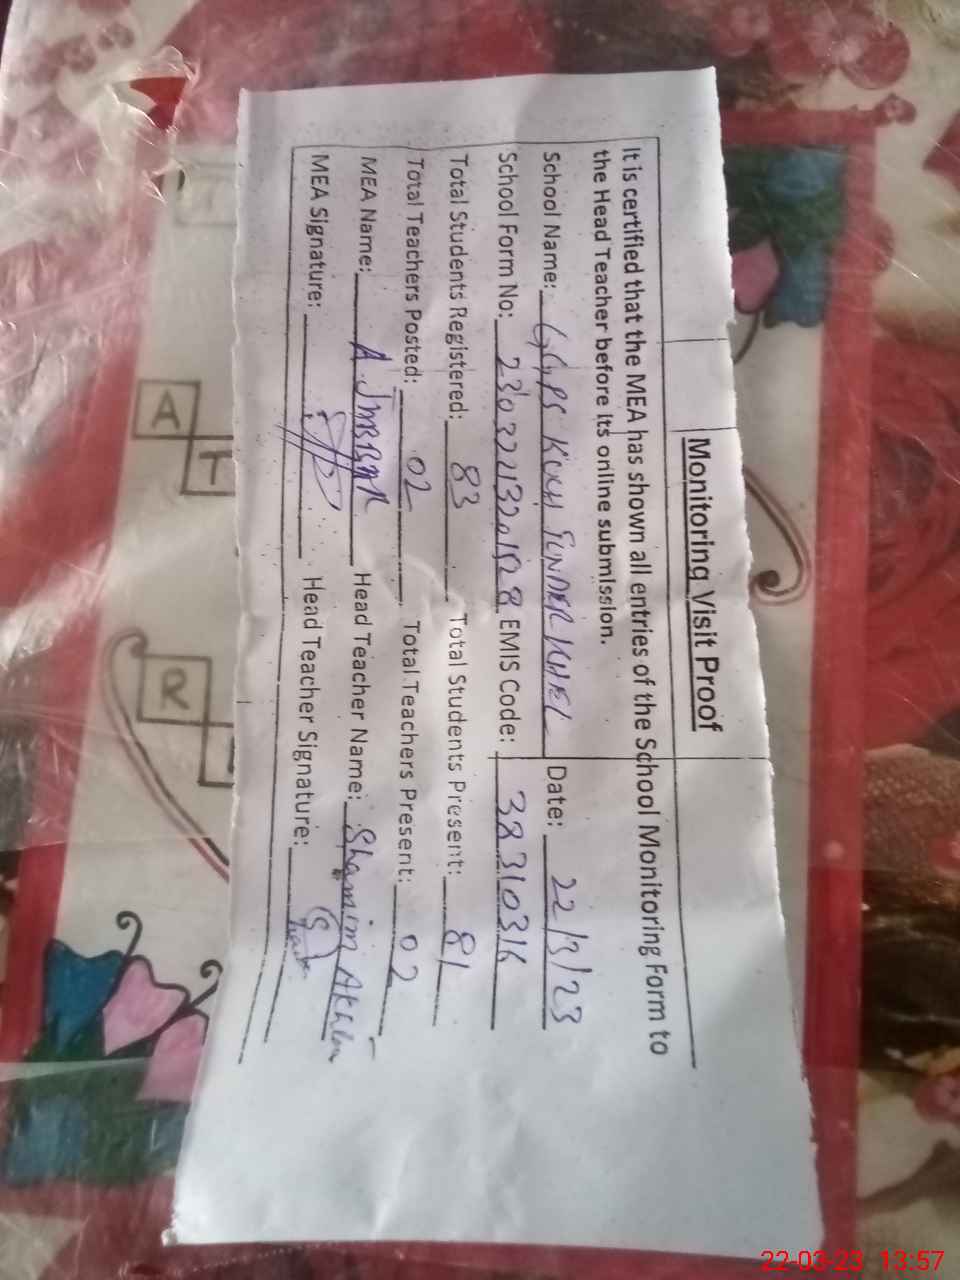 Monitoring Visit Proof
It is certified that the MEA has shown all entries of the School Monitoring Form to
the Head Teacher before its online submission.
School Name: GGPS KUCH SUNDER KHEL Date: 22/3/23
School Form No: EMIS Code: 38310316
Total Students Registered: 83 Total Students Present: 81
Total Teachers Posted: 02 Total Teachers Present: 02
MEA Name: A. JABBAR Head Teacher Name: Shamim Akhter
MEA Signature: Head Teacher Signature:
A
T
R
22-03-23 13:57